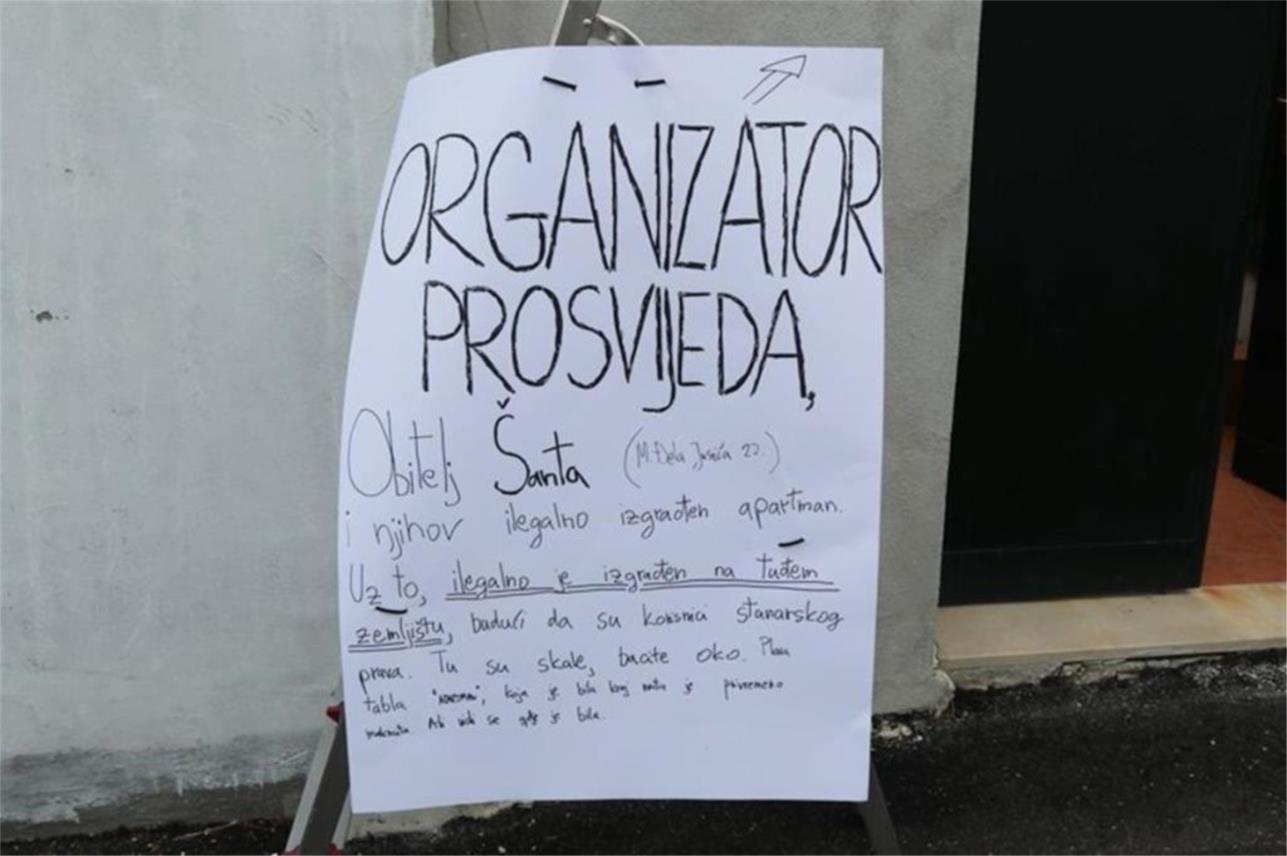 ORGANIZATOR
PROSVIJEDA,
Obitelj Šanta (M. Đela Jusića 22.)
i njihov ilegalno izgrađen apartman.
Uz to, ilegalno je izgrađen na tuđem
zemljištu, budući da su korisnici stanarskog
prava. Tu su skale, bacite oko. Plava
tabla "APARTMAN", koja je bila kraj vrata je privremeno
maknuta. Ali vidi se gdje je bila.